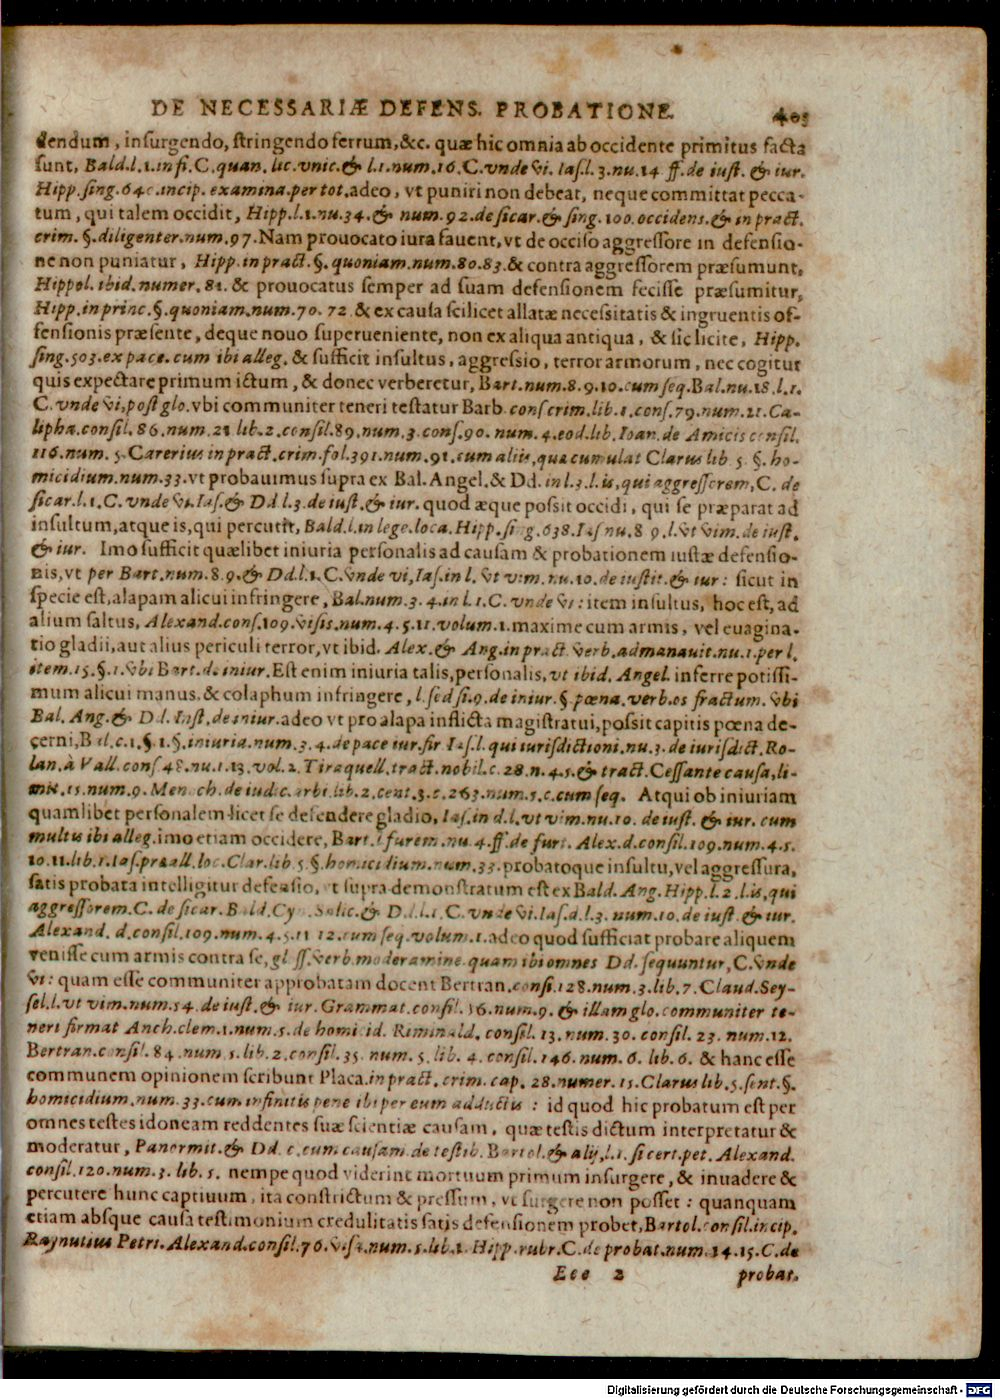 DE NECESSARIÆ DEFENS. PROBATIONE. 403
dendum, insurgendo, stringendo ferrum, &c. quæ hic omnia ab occidente primitus facta
sunt, Bald. l. 1. in fi. C. quan. lic. vnic. & l. 1. num. 16. C. vnde vi. Ias. l. 3. nu. 14 ff. de iust. & iur.
Hipp. sing. 640. incip. examina. per tot. adeo, vt puniri non debeat, neque committat pecca-
tum, qui talem occidit, Hipp. l. 1. nu. 34. & num. 92. de sicar. & sing. 100. occidens. & in pract.
crim. §. diligenter. num. 97. Nam prouocato iura fauent, vt de occiso aggressore in defensio-
ne non puniatur, Hipp. in pract. §. quoniam. num. 80. 83. & contra aggressorem præsumunt,
Hippol. ibid. numer. 81. & prouocatus semper ad suam defensionem fecisse præsumitur,
Hipp. in princ. §. quoniam. num. 70. 72. & ex causa scilicet allatæ necessitatis & ingruentis of-
fensionis præsente, deque nouo superueniente, non ex aliqua antiqua, & sic licite, Hipp.
sing. 503. ex pace. cum ibi alleg. & sufficit insultus, aggressio, terror armorum, nec cogitur
quis expectare primum ictum, & donec verberetur, Bart. num. 8. 9. 10. cum seq. Bal. nu. 18. l. 1.
C. vnde vi, post glo. vbi communiter teneri testatur Barb. cons. crim. lib. 1. cons. 79. num. 21. Ca-
lipha. consil. 86. num. 21 lib. 2. consil. 89. num. 3. cons. 90. num. 4. eod. lib. Ioan. de Amicis consil.
116. num. 5. Carerius in pract. crim. fol. 391. num. 91. cum aliis, quæ cumulat Clarus lib. 5. §. ho-
micidium. num. 33. vt probauimus supra ex Bal. Angel. & Dd. in l. 3. l. is, qui aggressorem, C. de
sicar. l. 1. C. vnde vi. Ias. & Dd l. 3. de iust. & iur. quod æque possit occidi, qui se præparat ad
insultum, atque is, qui percutit, Bald. l. in lege. loca. Hipp. sing. 638. Ias nu. 8 9. l. vt vim. de iust.
& iur. Imo sufficit quælibet iniuria personalis ad causam & probationem iustæ defensio-
nis, vt per Bart. num. 8. 9. & Dd. l. 1. C. vnde vi, Ias. in l. vt vim. nu. 10. de iustit. & iur: sicut in
specie est, alapam alicui infringere, Bal. num. 3. 4. in l. 1. C. vnde vi: item insultus, hoc est, ad
alium saltus, Alexand. cons. 109. visis. num. 4. 5. 11. volum. 1. maxime cum armis, vel euagina-
tio gladii, aut alius periculi terror, vt ibid. Alex. & Ang. in pract. verb. admanauit. nu. 1. per l.
item. 15. §. 1. vbi Bart. de iniur. Est enim iniuria talis, personalis, vt ibid. Angel. inferre potissi-
mum alicui manus. & colaphum infringere, l. sed si. 9. de iniur. §. pœna. verb. os fractum. vbi
Bal. Ang. & Dd. Inst. de iniur. adeo vt pro alapa inflicta magistratui, possit capitis pœna de-
cerni, Bal. c. 1. §. 1. §. iniuria. num. 3. 4. de pace iur. fir Ias. l. qui iurisdictioni. nu. 3. de iurisdict. Ro-
lan. à Vall. cons 48. nu. 1. 13. vol. 2. Tiraquell. tract. nobil. c. 28. n. 4. 5. & tract. Cessante causa, li-
mit. 15. num. 9. Menoch. de iudic. arbi. lib. 2. cent. 3. c. 263. num. 5. c. cum seq. Atqui ob iniuriam
quamlibet personalem licet se defendere gladio, Ias. in d. l. vt vim. nu. 10. de iust. & iur. cum
multis ibi alleg. imo etiam occidere, Bart. l furem. nu. 4. ff. de furt. Alex. d. consil. 109. num. 4. 5.
10. 11. lib. 1. Ias. præall. loc. Clar. lib 5. §. homicidium. num. 33. probatoque insultu, vel aggressura,
satis probata intelligitur defensio, vt supra demonstratum est ex Bald. Ang. Hipp. l. 2. l. is, qui
aggressorem. C. de sicar. Bald. Cyn. Salic. & Dd. l. 1. C. vnde vi. Ias. d. l. 3. num. 10. de iust. & iur.
Alexand. d. consil. 109. num. 4. 5. 11 12. cum seq. volum. 1. adeo quod sufficiat probare aliquem
venisse cum armis contra se, glo ss. verb. moderamine. quam ibi omnes Dd. sequuntur, C. vnde
vi: quam esse communiter approbatam docent Bertran. consi. 128. num. 3. lib. 7. Claud. Sey-
sel. l. vt vim. num. 54. de iust. & iur. Grammat. consil. 36. num. 9. & illam glo. communiter te-
neri firmat Anch. clem. 1. num. 5. de homicid. Riminald. consil. 13. num. 30. consil. 23. num. 12.
Bertran. consil. 84. num. 5. lib. 2. consil. 35. num. 5. lib. 4. consil. 146. num. 6. lib. 6. & hanc esse
communem opinionem scribunt Placa. in pract. crim. cap. 28. numer. 15. Clarus lib. 5. sent. §.
homicidium. num. 33. cum infinitis pene ibi per eum adductis: id quod hic probatum est per
omnes testes idoneam reddentes suæ scientiæ causam, quæ testis dictum interpretatur &
moderatur, Panormit. & Dd c. cum causam. de testib. Bartol. & alij, l. 1. si cert. pet. Alexand.
consil. 120. num. 3. lib. 5. nempe quod viderint mortuum primum insurgere, & inuadere &
percutere hunc captiuum, ita constrictum & pressum, vt surgere non posset: quanquam
etiam absque causa testimonium credulitatis satis defensionem probet, Bartol. consil. incip.
Raynutius Petri. Alexand. consil. 76. visa. num. 5. lib. 1. Hipp. rubr. C. de probat. num. 14. 15. C. de
Eee 2 probat.
Digitalisierung gefördert durch die Deutsche Forschungsgemeinschaft - DFG